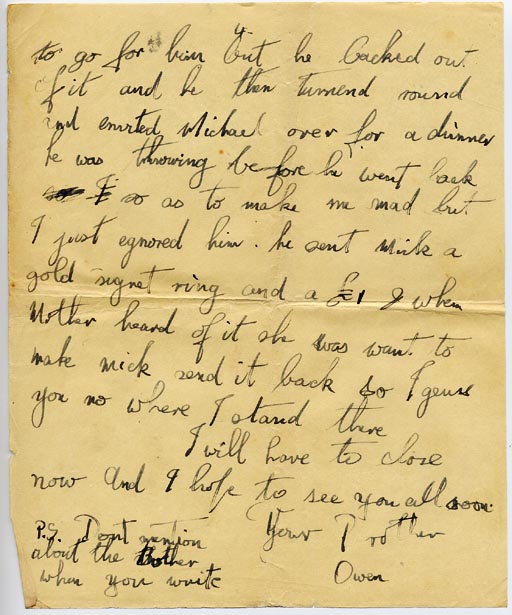 to go for him but he backed out
of it and he then turnend round
and envited Michael over for a dinner
he was throwing before he went back
so as to make me mad but
I just egnored him. he sent Mick a
gold signet ring and a £1 & when
Mother heard of it she was want to
make mick send it back so I geuss
you no where I stand there
I will have to close
now And I hope to see you all soon.
P.S. Dont mention
about the
when you write
Your Brother
Owen